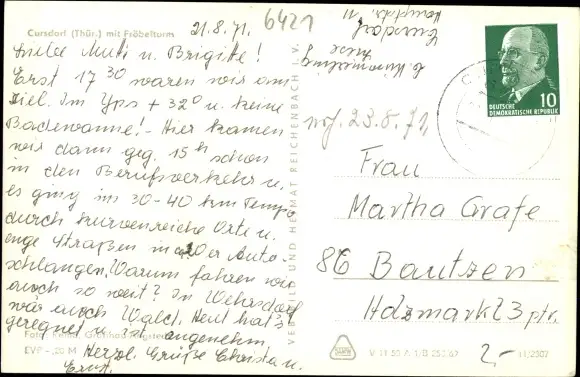 Cursdorf (Thür.) mit Fröbelturm
21.8.71.
6421
Liebe Mutti u. Brigitte!
Erst 17³⁰ waren wir am
Ziel. Im Yps + 32° u. keine
Badewanne! - Hier kamen
wir dann geg. 15ʰ schon
in den Berufsverkehr u.
es ging im 30-40 km Tempo
durch kurvenreiche Orte u.
enge Straßen in 20er Auto-
schlangen. Warum fahren wir
auch so weit? In Wehrsdorf
wär auch Wald. Heut hat's
geregnet u. ist angenehm.
Herzl. Grüße Christa u.
Ernst.
EVP -,20 M
VERBILD UND HEIMAT REICHENBACH I. V.
Cursdorf
DEUTSCHE
DEMOKRATISCHE REPUBLIK
10
23.8.71
Frau
Martha Grafe
86 Bautzen
Holzmarkt 23 ptr.
V 11 50 A 1/B
2,-